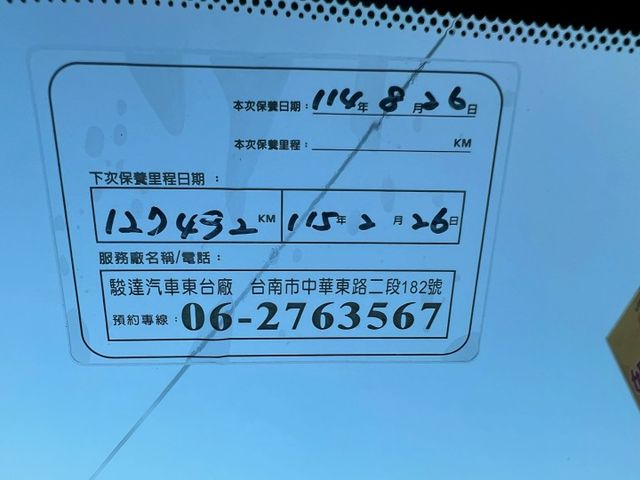 本次保養日期：114年 8月26日
本次保養里程： KM
下次保養里程日期：
127432 KM 115年 2月 26日
服務廠名稱/電話：
駿達汽車東台廠 台南市中華東路二段182號
預約專線：06-2763567